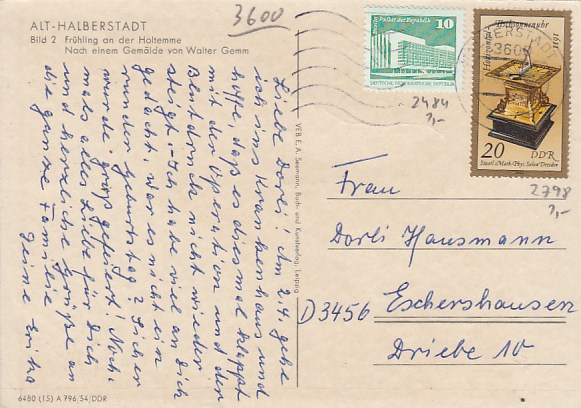 3600
ALT-HALBERSTADT
Bild 2 Frühling an der Holtemme
Nach einem Gemälde von Walter Gemm
Berlin, Palast der Republik
10
DEUTSCHE DEMOKRATISCHE REPUBLIK
2484
?,-
1611
20
DDR
Staatl. Math.-Phys. Salon Dresden
2798
?,-
HALBERSTADT
3600
Liebe Dorli! Am 2.4. gehe
ich ins Krankenhaus und
hoffe, daß es diesmal klappt
mit der Operation und der
Blutdruck nicht wieder
steigt. Ich habe viel an Dich
gedacht, war es nicht ein
runder Geburtstag? Sicher
wurde groß gefeiert! Noch-
mals alles Liebe für Dich
und herzliche Grüße an
die ganze Familie
Deine Erika
VEB E. A. Seemann, Buch- und Kunstverlag, Leipzig
Frau
Dorli Hausmann
D3456 Eschershausen
Driebe 10
6480 (15) A 796/54/DDR